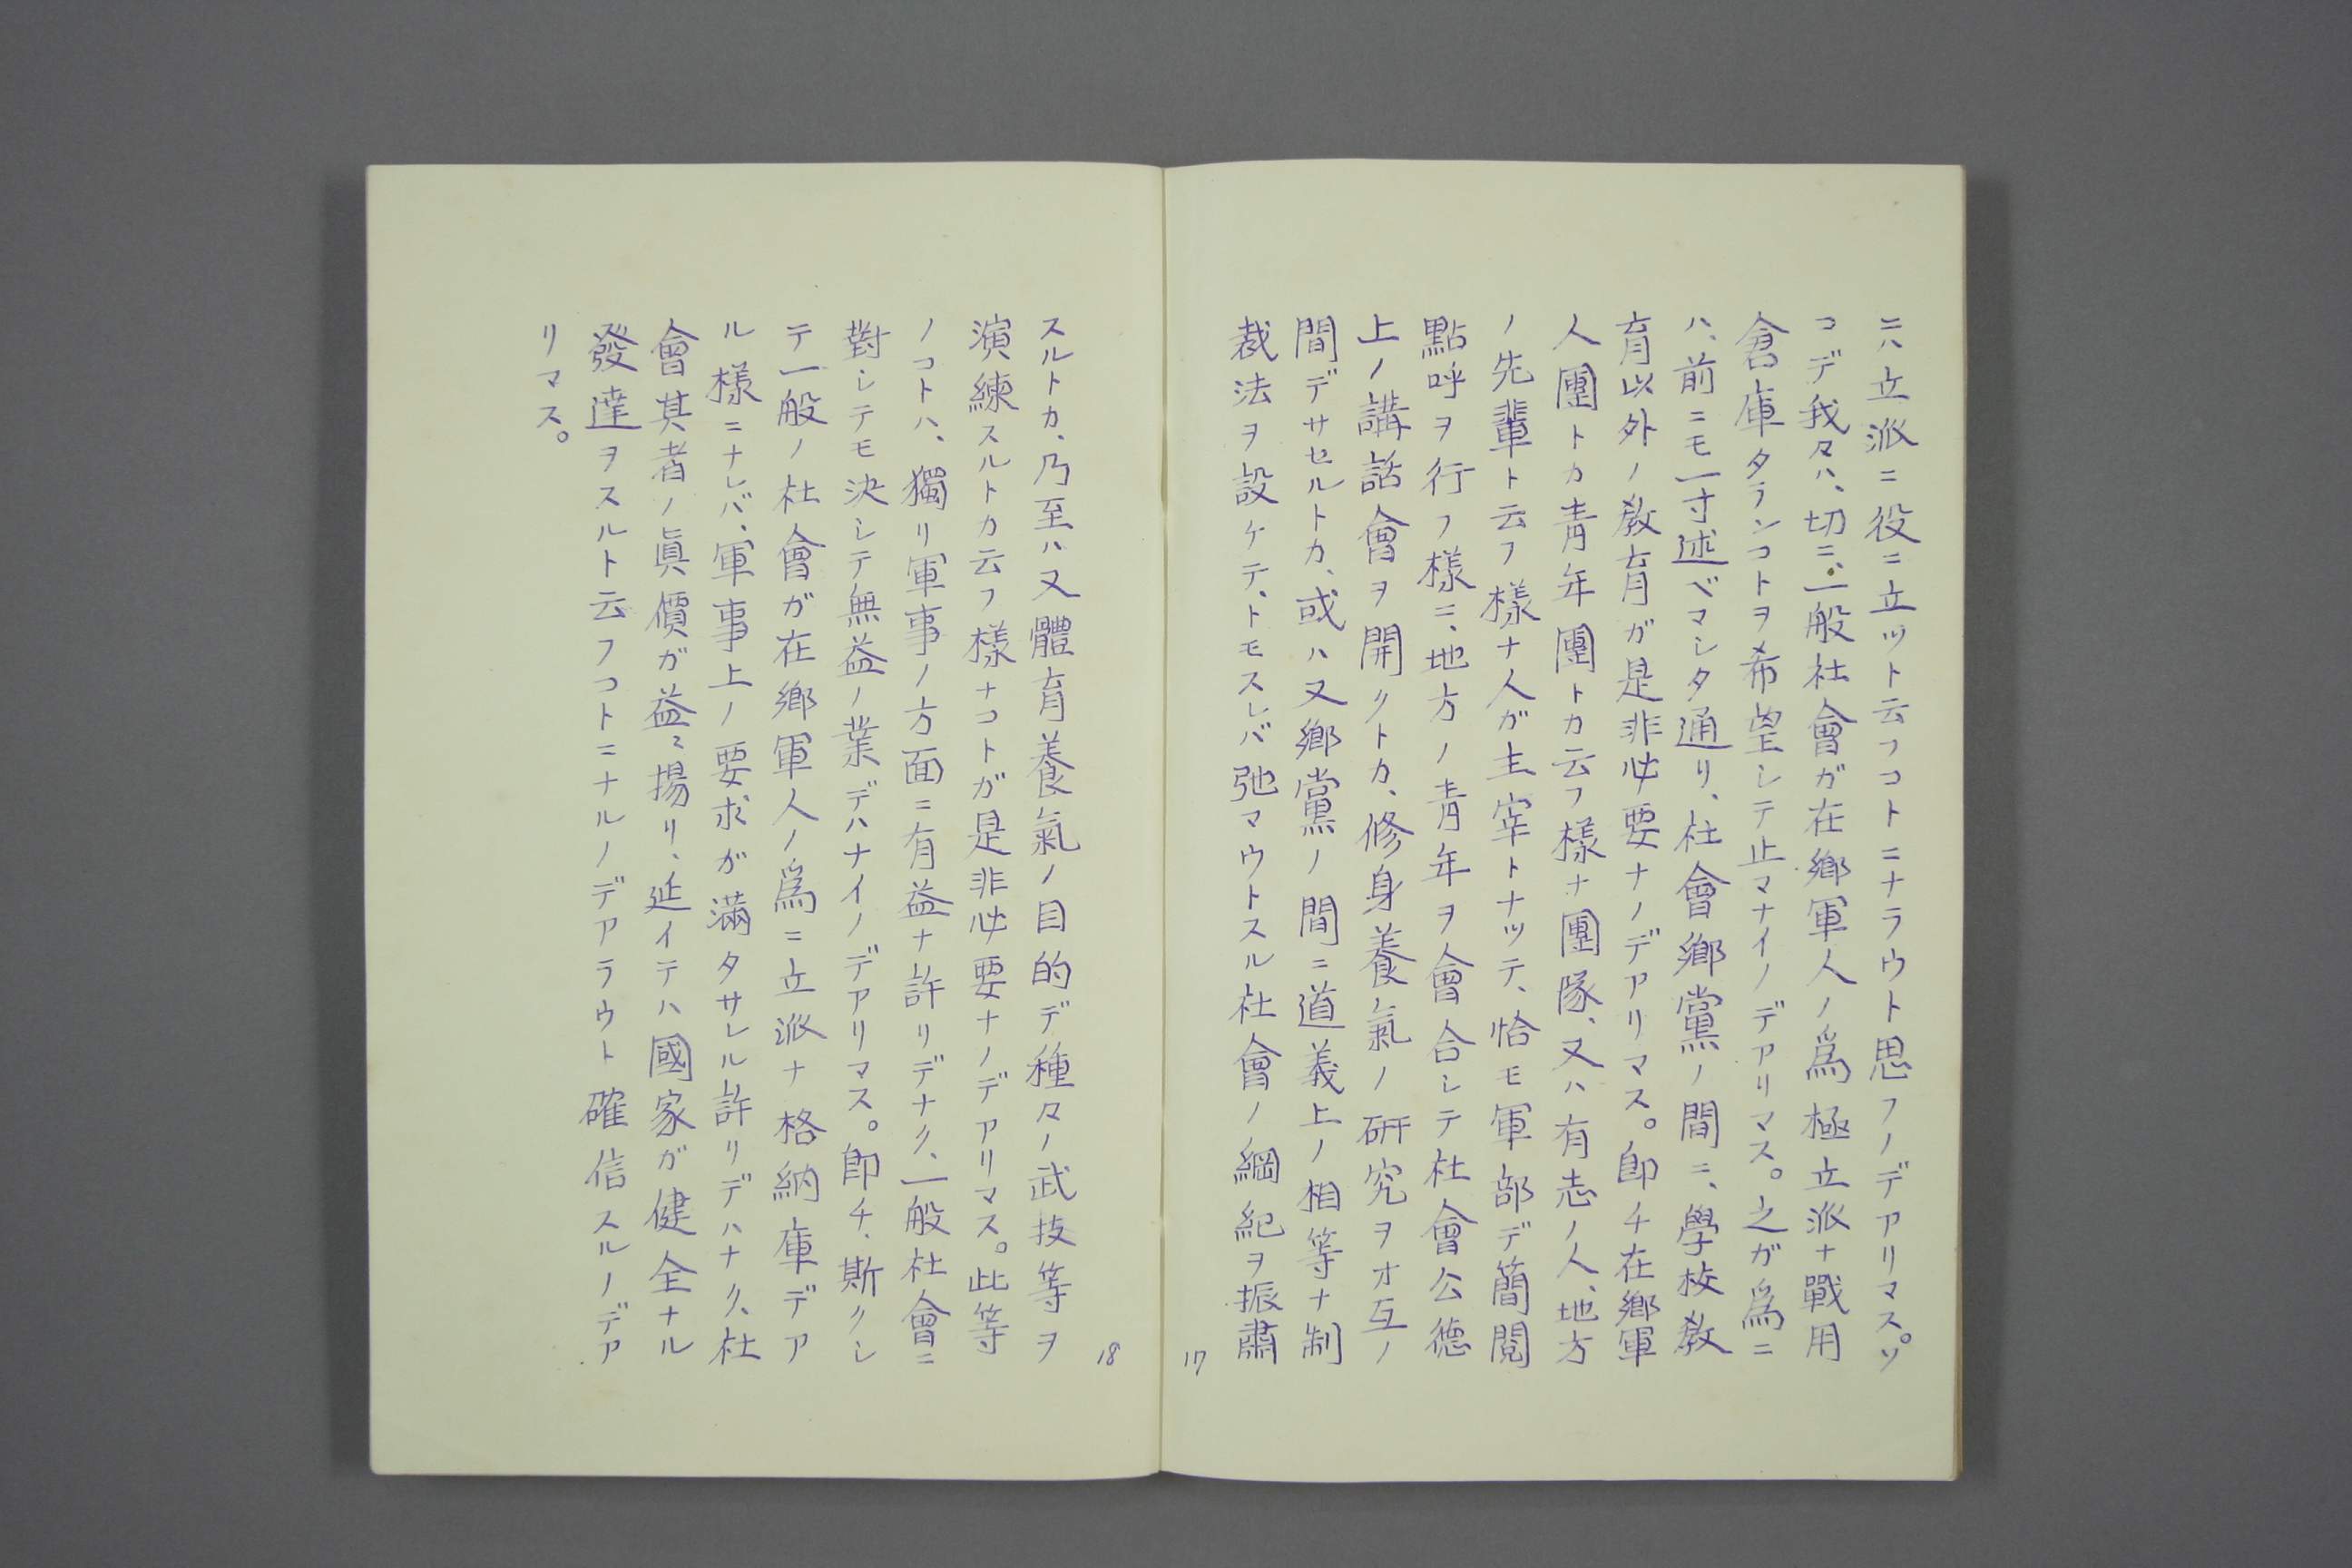 ニハ立派ニ役ニ立ツト云フコトニナラウト思フノデアリマス。ソ
コデ我々ハ、切ニ、一般社會が在鄉軍人ノ爲極立派ナ戰用
倉庫タランコトヲ希望シテ止マナイノデアリマス。之が爲ニ
ハ、前ニモ一寸述ベマシタ通リ、社會鄉黨ノ間ニ、學校敎
育以外ノ敎育が是非必要ナノデアリマス。即チ在鄉軍
人團トカ靑年團トカ云フ樣ナ團隊、又ハ有志ノ人、地方
ノ先輩ト云フ樣ナ人が主宰トナツテ、恰モ軍部デ簡閱
點呼ヲ行フ樣ニ、地方ノ靑年ヲ會合シテ社會公德
上ノ講話會ヲ開クトカ、修身養氣ノ硏究ヲオ互ノ
間デサセルトカ、或ハ又鄉黨ノ間ニ道義上ノ相等ナ制
裁法ヲ設ケテ、トモスレバ弛マウトスル社會ノ綱紀ヲ振肅
17
18
スルトカ、乃至ハ又體育養氣ノ目的デ種々ノ武技等ヲ
演練スルトカ云フ樣ナコトが是非必要ナノデアリマス。此等
ノコトハ、獨リ軍事ノ方面ニ有益ナ許リデナク、一般社會ニ
對シテモ決シテ無益ノ業デハナイノデアリマス。即チ、斯クシ
テ一般ノ社會が在鄉軍人ノ爲ニ立派ナ格納庫デア
ル樣ニナレバ、軍事上ノ要求が滿タサレル許リデハナク、社
會其者ノ眞價が益々揚リ、延イテハ國家が健全ナル
發達ヲスルト云フコトニナルノデアラウト確信スルノデア
リマス。